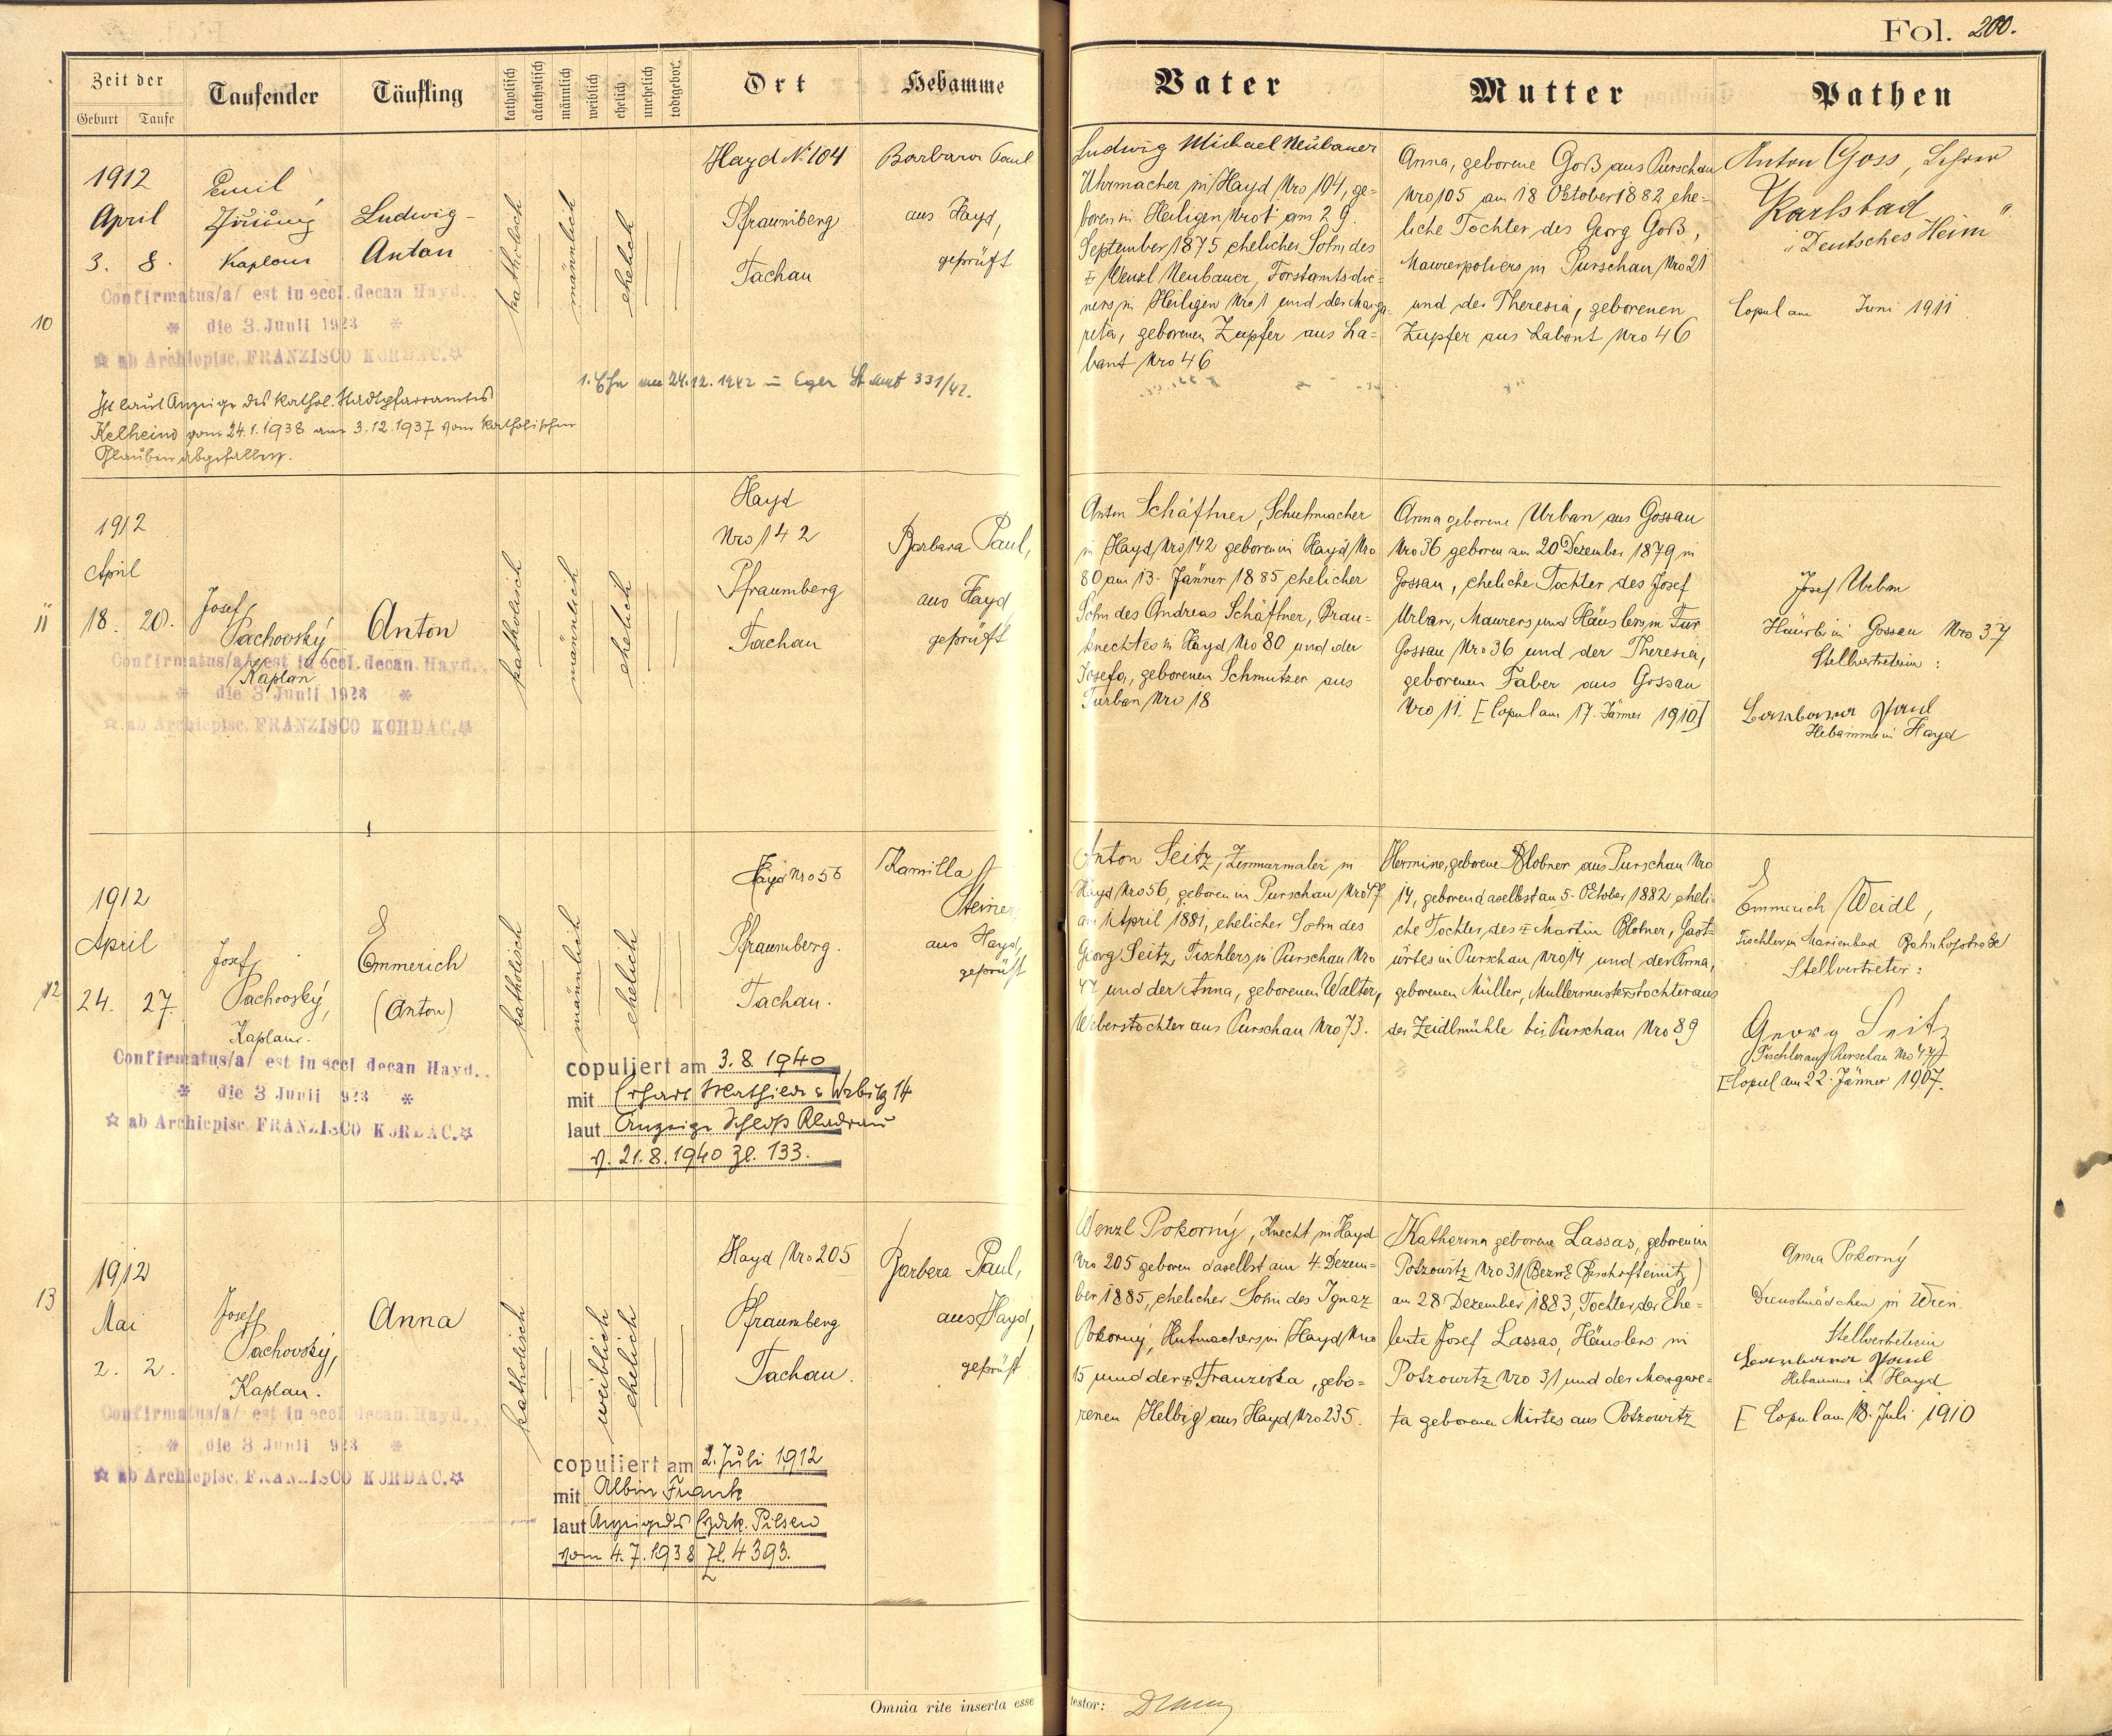 Fol. 200.
Zeit der
Geburt Taufe
Taufender
Täufling
katholisch
akatholisch
männlich
weiblich
ehelich
unehelich
todtgebor.
Ort
Hebamme
Vater
Mutter
Pathen
10
1912
April
3. 8.
Emil
Kaplan
Ludwig-
Anton
katholisch
männlich
ehelich
Hayd No 104
Pfraumberg
Tachau
Barbara Paul
aus Hayd,
geprüft
Confirmatus/a/ est in eccl. decan. Hayd.
* die 3. Junii 1923 *
☆ ab Archiepisc. FRANZISCO KORDAC.☆
Ist laut Anzeige des kathol. Stadtpfarramtes
Kelheim vom 24.1.1938 am 3.12.1937 vom katholischen
Glauben abgefallen.
1. Ehe am 24.12.1942 in Eger St. Amt 331/42.
Ludwig Michael Neubauer
Uhrmacher in Hayd Nro 104, ge-
boren in Heiligen Nro 1 am 29.
September 1875 ehelicher Sohn des
Wenzl Neubauer, Forstamtsdie-
ners in Heiligen Nro 1 und der Marga-
reta, geborenen Zupfer aus La-
bant Nro 46
Anna, geborene Goß aus Purschau
Nro 105 am 18 Oktober 1882 ehe-
liche Tochter des Georg Goß,
Maurerpoliers in Purschau Nro 21
und der Theresia, geborenen
Zupfer aus Labant Nro 46
Anton Goss, Lehrer
Karlsbad
"Deutsches Heim"
Copul am Juni 1911
11
1912
April
18. 20.
Josef
Pachovský
Kaplan
Anton
katholisch
männlich
ehelich
Hayd
Nro 142
Pfraumberg
Tachau
Barbara Paul,
aus Hayd
geprüft
Confirmatus/a/ est in eccl. decan. Hayd.
* die 3. Junii 1923 *
☆ ab Archiepisc. FRANZISCO KORDAC.☆
Anton Schäffner, Schuhmacher
in Hayd Nro 142 geboren in Hayd Nro
80 am 13. Jänner 1885 ehelicher
Sohn des Andreas Schäffner, Brau-
knechtes in Hayd Nro 80 und der
Josefa, geborenen Schmutzer aus
Turban Nro 18
Anna geborene Urban aus Gossau
Nro 36 geboren am 20 Dezember 1879 in
Gossau, eheliche Tochter des Josef
Urban, Maurers und Häuslers in
Gossau Nro 36 und der Theresia,
geborenen Faber aus Gossau
Nro 11. [Copul am 17. Jänner 1910]
Josef Urban
Häusler in Gossau Nro 37
Stellvertreterin:
Barbara Paul
Hebamme in Hayd
12
1912
April
24. 27.
Josef
Pachovský,
Kaplan.
Emmerich
(Anton)
katholisch
männlich
ehelich
Hayd Nro 56
Pfraumberg.
Tachau.
Kamilla
Steiner,
aus Hayd,
geprüft
Confirmatus/a/ est in eccl decan Hayd.
* die 3 Junii 923 *
☆ ab Archiepisc FRANZISCO KORDAC.☆
copuliert am 3.8.1940
mit Erhart 14
laut Anzeige Schloß Kladrau
v. 21.8.1940 Zl. 133.
Anton Seitz, Zimmermaler in
Hayd Nro 56, geboren in Purschau Nro 47
am 1 April 1881, ehelicher Sohn des
Georg Seitz, Tischlers in Purschau Nro
47 und der Anna, geborenen Walter,
Weberstochter aus Purschau Nro 73.
Hermine, geborene Blobner aus Purschau Nro
14, geboren daselbst am 5. October 1882 eheli-
che Tochter des Martin Blobner, Gast-
wirtes in Purschau Nro 14 und der Anna,
geborenen Müller, Müllermeisterstochter aus
der Zeidlmühle bei Purschau Nro 89
Emmerich Weidl,
Tischler in Marienbad Bahnhofstraße
Stellvertreter:
Georg Seitz
Tischler aus Purschau Nro 47
[Copul am 22. Jänner 1907.
13
1912
Mai
2. 2.
Josef
Pachovský,
Kaplan.
Anna
katholisch
weiblich
ehelich
Hayd Nro 205
Pfraumberg
Tachau.
Barbara Paul,
aus Hayd,
geprüft
Confirmatus/a/ est in eccl decan. Hayd.
* die 3 Junii 923 *
☆ ab Archiepisc. FRANZISCO KORDAC.☆
copuliert am 2. Juli 1912
mit Albin Frank
laut Anzeige des Erzdek. Pilsen
vom 4.7.1938 Zl. 4393.
Wenzl Pokorný, Knecht in Hayd
Nro 205 geboren daselbst am 4. Dezem-
ber 1885, ehelicher Sohn des Ignaz
Pokorný, Hutmachers in Hayd Nro
15 und der Franziska, gebo-
renen Helbig aus Hayd Nro 235.
Katharina geborene Lassas, geboren in
Potzowitz Nro 31 (Bezirk Bischofteinitz)
am 28 Dezember 1883, Tochter der Ehe-
leute Josef Lassas, Häuslers in
Potzowitz Nro 31 und der Margare-
ta geborenen Mirtes aus Potzowitz
Anna Pokorný
Dienstmädchen in Wien.
Stellvertreterin
Barbara Paul
Hebamme in Hayd
[Copul am 18. Juli 1910
Omnia rite inserta esse testor: